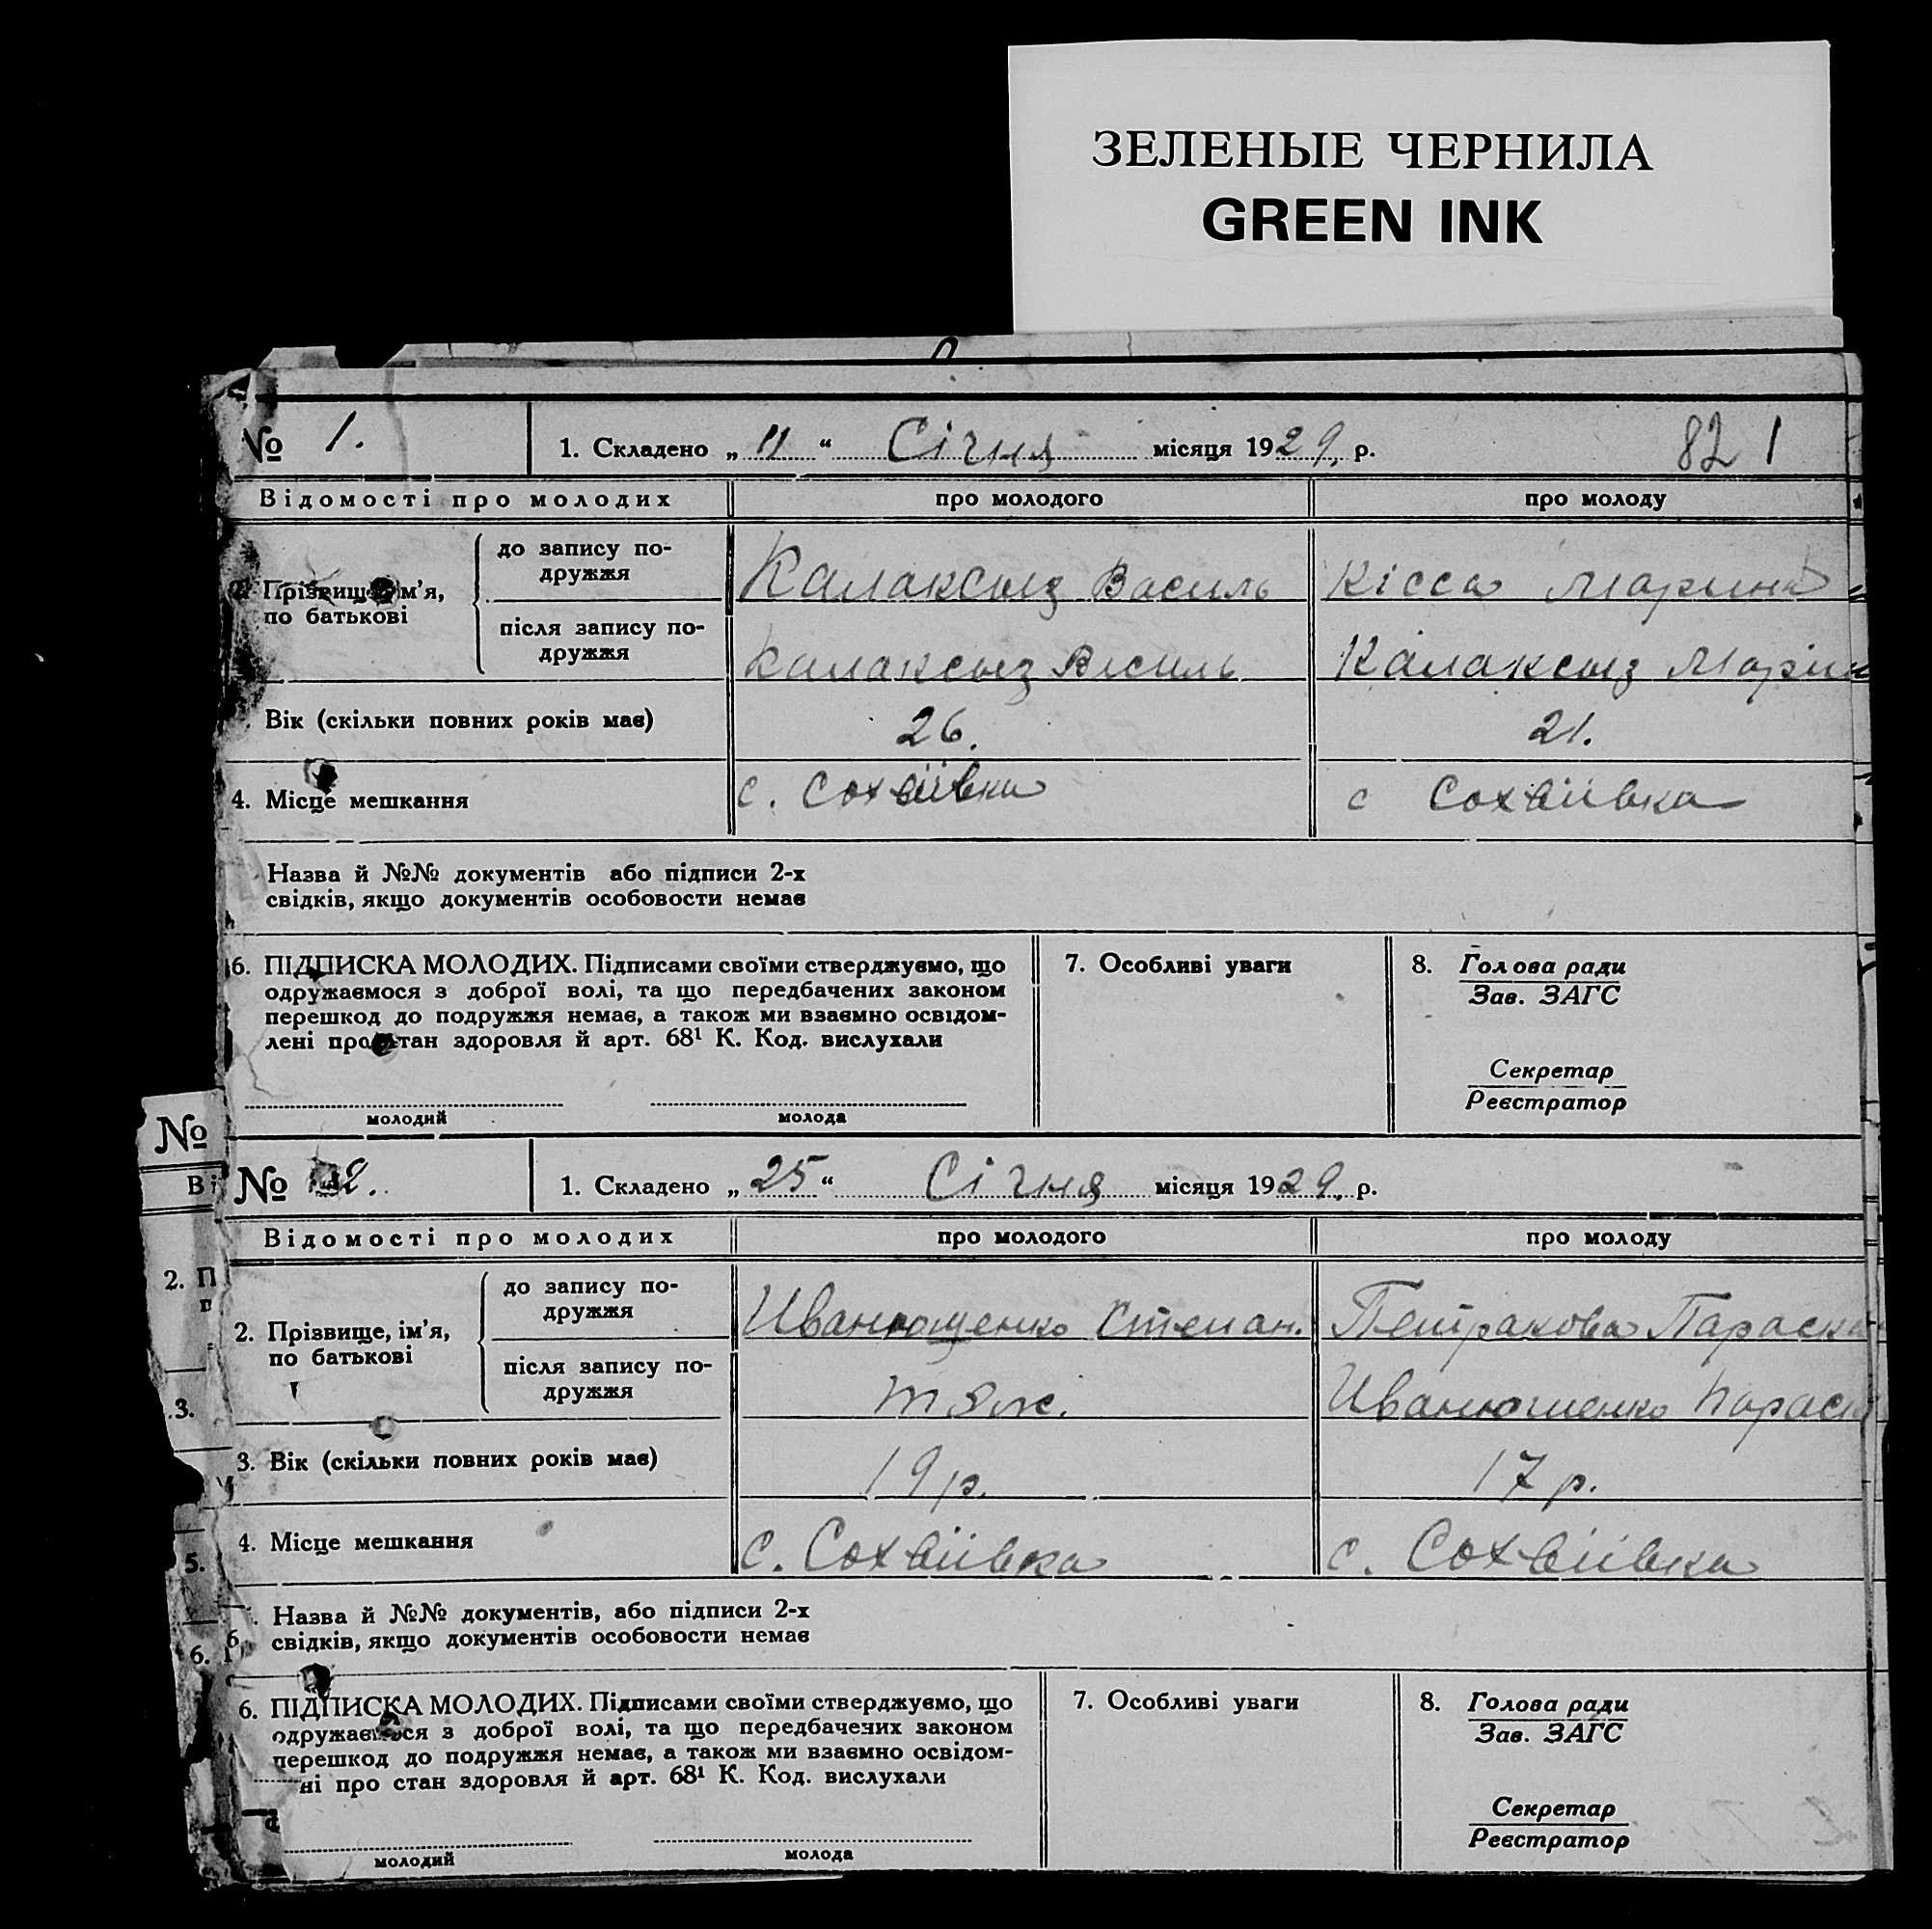 ЗЕЛЕНЫЕ ЧЕРНИЛА
GREEN INK
№ 1. 1. Складено „ 11 “ Січня місяця 1929, р. 82 1
Відомості про молодих про молодого про молоду
Прізвище, ім’я, по батькові
до запису подружжя
Калаксыз Василь Кісса Марина
після запису подружжя
Калаксыз Василь Калаксыз
Вік (скільки повних років має) 26. 21.
4. Місце мешкання с. Сохвіівка с Сохвіівка
Назва й №№ документів або підписи 2-х
свідків, якщо документів особовости немає
6. ПІДПИСКА МОЛОДИХ. Підписами своїми стверджуємо, що
одружаємося з доброї волі, та що передбачених законом
перешкод до подружжя немає, а також ми взаємно освідом-
лені про стан здоровля й арт. 68¹ К. Код. вислухали
молодий молода
7. Особливі уваги
8. Голова ради
Зав. ЗАГС
Секретар
Реєстратор
№
Ві
№ 2. 1. Складено „ 25 “ Січня місяця 1929, р.
Відомості про молодих про молодого про молоду
2. Прізвище, ім’я,
по батькові
до запису по-
дружжя
Иванющенко Степан. Петракова Параска
після запису по-
дружжя
тож. Иванюшенко Параск
3. Вік (скільки повних років має) 19 р. 17 р.
4. Місце мешкання с. Сохвіівка с. Сохвіівка
Назва й №№ документів, або підписи 2-х
свідків, якщо документів особовости немає
6. ПІДПИСКА МОЛОДИХ. Підписами своїми стверджуємо, що
одружаємося з доброї волі, та що передбачених законом
перешкод до подружжя немає, а також ми взаємно освідом-
ні про стан здоровля й арт. 68¹ К. Код. вислухали
молодий молода
7. Особливі уваги
8. Голова ради
Зав. ЗАГС
Секретар
Реєстратор